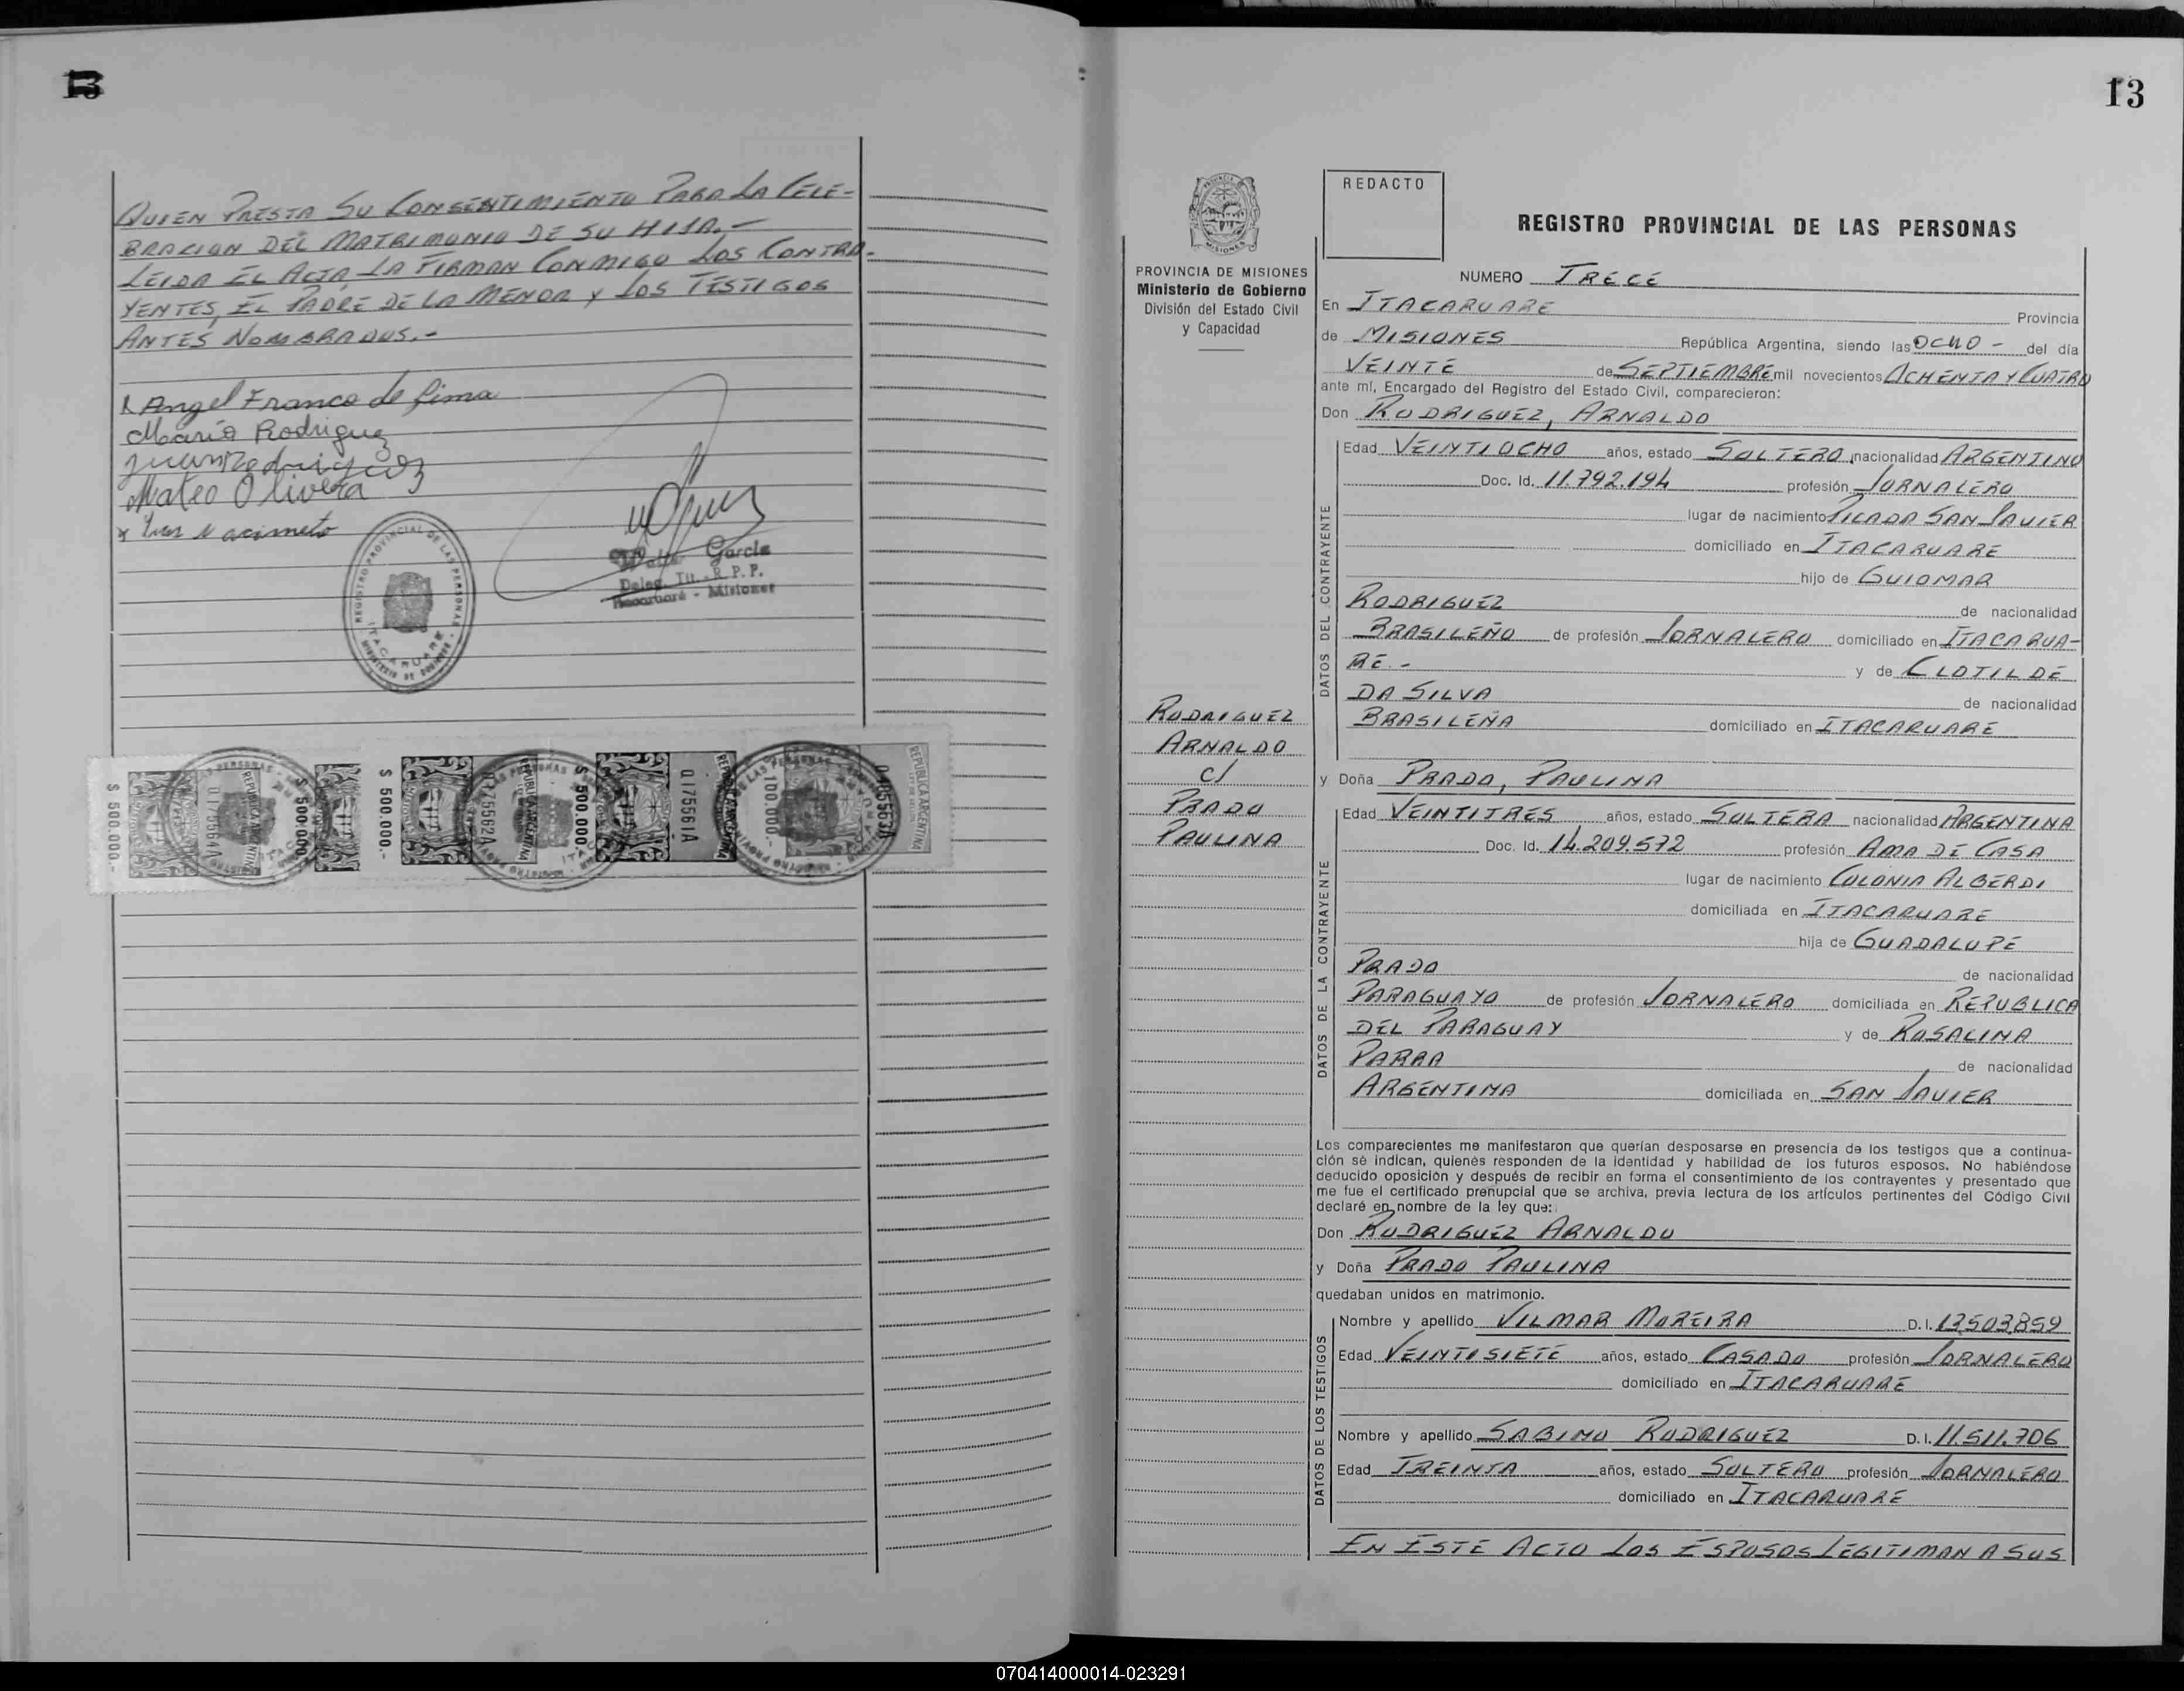 13
QUIEN PRESTA SU CONSENTIMIENTO PARA LA CELE-
BRACION DEL MATRIMONIO DE SU HIJA.-
LEIDA EL ACTA, LA FIRMAN CONMIGO LOS CONTRA-
YENTES, EL PADRE DE LA MENOR y LOS TESTIGOS
ANTES NOMBRADOS.-
Angel Franco de Lima
María Rodriguez
Juan Rodriguez
Mateo Olivera
García
Deleg. Tit. - R. P. P.
Itacaruaré - Misiones
REGISTRO PROVINCIAL DE LAS PERSONAS
ITACARUARE
$ 500.000.-
$ 500.000.-
$ 500.000.-
0175562A
REPUBLICA ARGENTINA
$ 500.000.-
0175561A
REPUBLICA ARGENTINA
$ 100.000.-
REPUBLICA ARGENTINA
13
PROVINCIA DE MISIONES
Ministerio de Gobierno
División del Estado Civil
y Capacidad
RODRIGUEZ
ARNALDO
c/
PRADO
PAULINA
REDACTO
REGISTRO PROVINCIAL DE LAS PERSONAS
NUMERO TRECE
En ITACARUARE Provincia
de MISIONES República Argentina, siendo las OCHO - del día
VEINTE de SEPTIEMBRE mil novecientos OCHENTA Y CUATRO
ante mí, Encargado del Registro del Estado Civil, comparecieron:
Don RODRIGUEZ, ARNALDO
DATOS DEL CONTRAYENTE
Edad VEINTIOCHO años, estado SOLTERO, nacionalidad ARGENTINO
Doc. Id. 11.792.194 profesión JORNALERO
lugar de nacimiento PICADA SAN JAVIER
domiciliado en ITACARUARE
hijo de GUIOMAR
RODRIGUEZ de nacionalidad
BRASILEÑO de profesión JORNALERO domiciliado en ITACARUA-
RE.- y de CLOTILDE
DA SILVA de nacionalidad
BRASILEÑA domiciliado en ITACARUARE
y Doña PRADO, PAULINA
DATOS DE LA CONTRAYENTE
Edad VEINTITRES años, estado SOLTERA nacionalidad ARGENTINA
Doc. Id. 14.209.572 profesión AMA DE CASA
lugar de nacimiento COLONIA ALBERDI
domiciliada en ITACARUARE
hija de GUADALUPE
PRADO de nacionalidad
PARAGUAYO de profesión JORNALERO domiciliada en REPUBLICA
DEL PARAGUAY y de ROSALINA
PARRA de nacionalidad
ARGENTINA domiciliada en SAN JAVIER
Los comparecientes me manifestaron que querían desposarse en presencia de los testigos que a continua-
ción se indican, quienes responden de la identidad y habilidad de los futuros esposos. No habiéndose
deducido oposición y después de recibir en forma el consentimiento de los contrayentes y presentado que
me fue el certificado prenupcial que se archiva, previa lectura de los artículos pertinentes del Código Civil
declaré en nombre de la ley que:
Don RODRIGUEZ ARNALDO
y Doña PRADO PAULINA
quedaban unidos en matrimonio.
DATOS DE LOS TESTIGOS
Nombre y apellido VILMAR MOREIRA D.I. 13.503.859
Edad VEINTISIETE años, estado CASADO profesión JORNALERO
domiciliado en ITACARUARE
Nombre y apellido SABINO RODRIGUEZ D.I. 11.511.706
Edad TREINTA años, estado SOLTERO profesión JORNALERO
domiciliado en ITACARUARE
EN ESTE ACTO LOS ESPOSOS LEGITIMAN A SUS
070414000014-023291